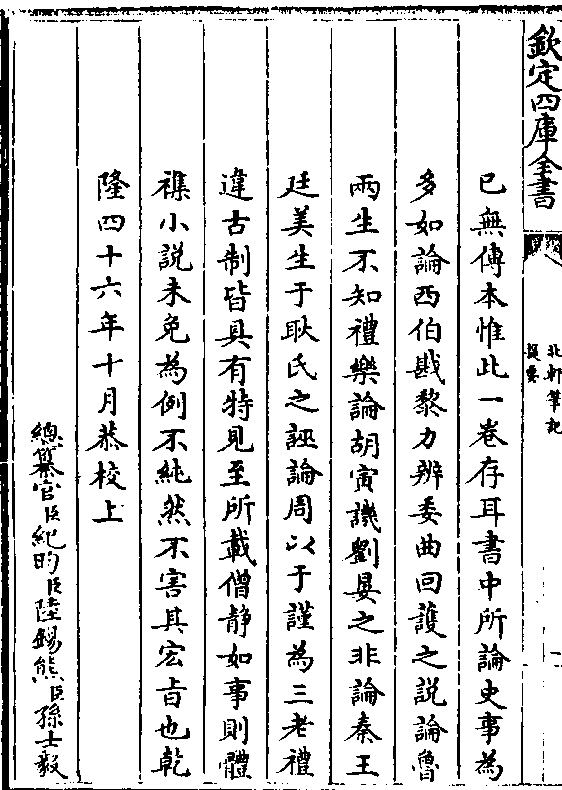 欽定四庫全書
北軒筆記
提要
已無傳本惟此一卷存耳書中所論史事為
多如論西伯戡黎力辨委曲回護之説論魯
兩生不知禮樂論胡寅譏劉晏之非論秦王
廷美生于耿氏之誣論周以于謹為三老禮
違古制皆具有特見至所載僧静如事則體
襍小説未免為例不純然不害其宏旨也乾
隆四十六年十月恭校上
總纂官臣紀昀臣陸錫熊臣孫士毅